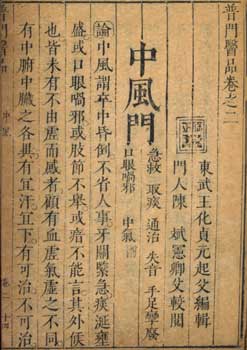 普門醫品卷之二
東武王化貞元起父編輯
門人陳 斌憲卿父較閱
中風門
急救 取痰 通治 失音 手足攣廢
口眼喎邪 中氣
論中風謂卒中昏倒不省人事牙關緊急痰涎壅
盛或口眼喎邪或肢節不舉或瘖不能言其外候
也皆未有不由虛而感者顧有血虛氣虛之不同
有中腑中臟之各異有宜汗宜下有可治不可治
普門醫品